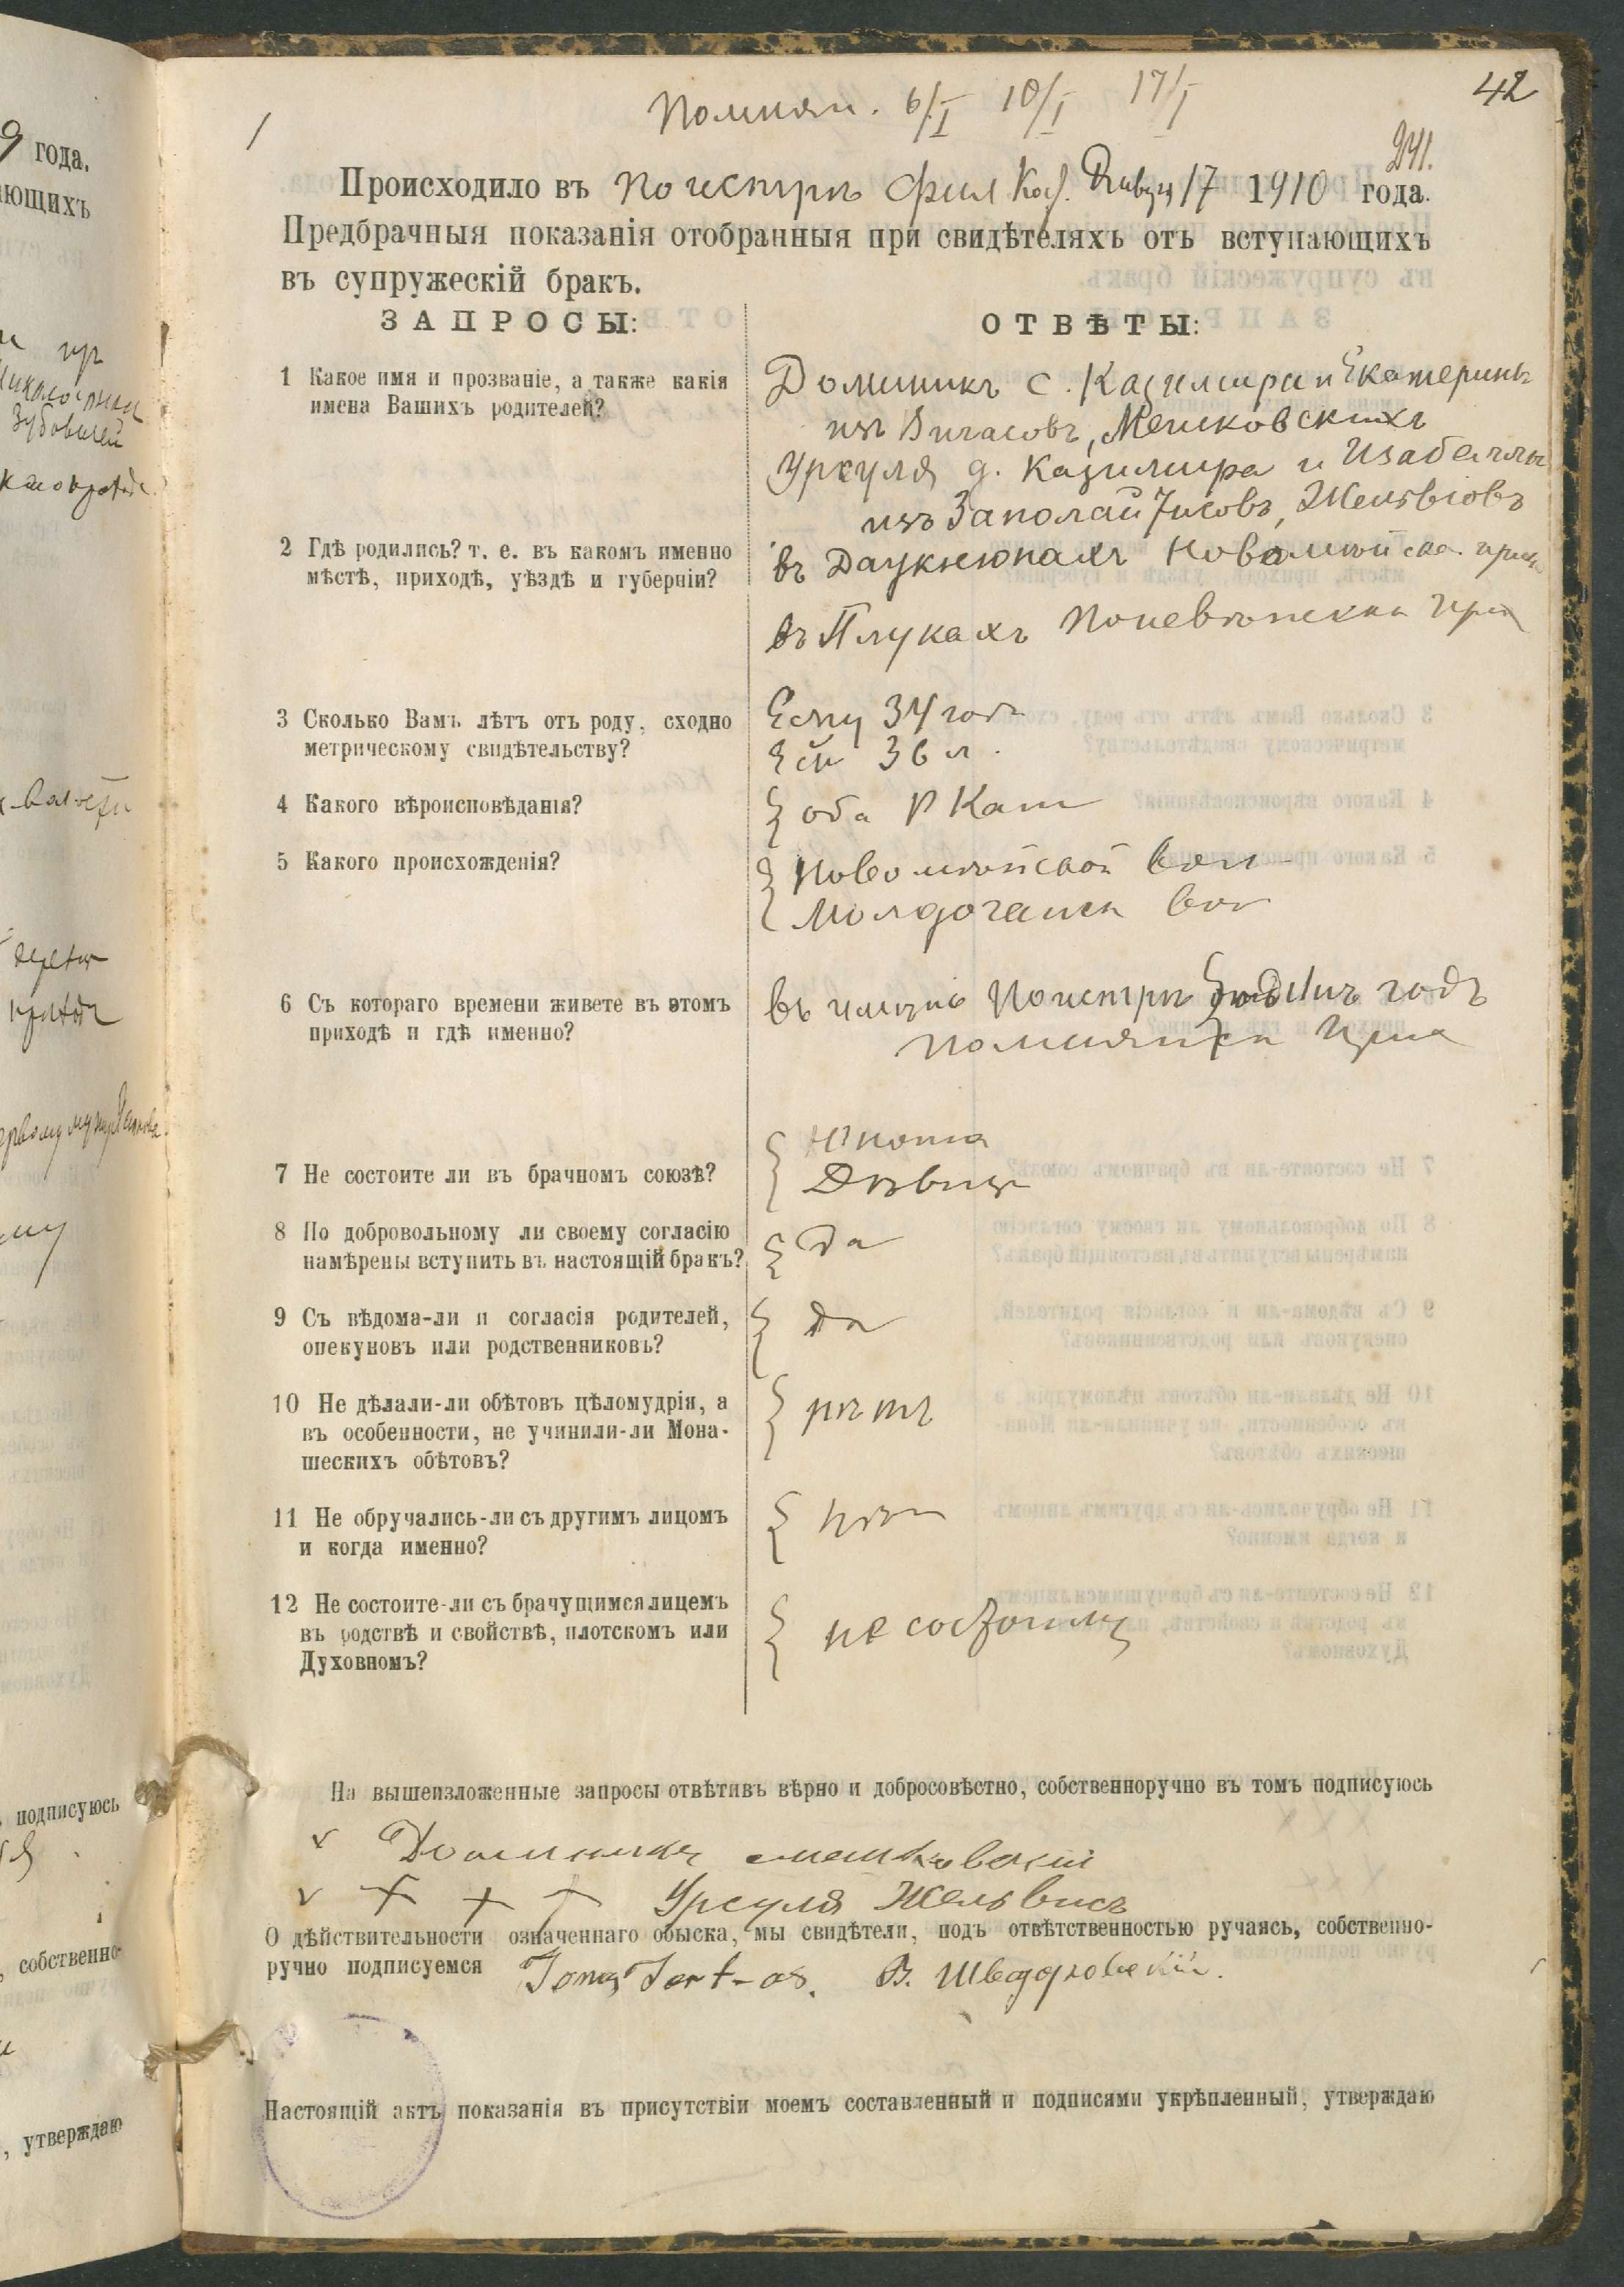 42
Помнян. 6/I 10/I 17/I
241.
Происходило въ Поистрѣ Фил Кос. Января 17 1910 года.
Предбрачныя показанія отобранныя при свидѣтеляхъ отъ вступающихъ
въ супружескій бракъ.
ЗАПРОСЫ: ОТВѢТЫ:
1 Какое имя и прозваніе, а также какія
имена Вашихъ родителей?
Доминикъ с. Казимира и Екатерины
изъ Вичасовъ, Мешковскихъ
Урсуля д. Казимира и Изабеллы
изъ Заполай, Жельвіовъ
2 Гдѣ родились? т. е. въ какомъ именно
мѣстѣ, приходѣ, уѣздѣ и губерніи?
въ Даукнюнахъ Новомѣйска. прих
въ Плукахъ Поневѣжскаго При
3 Сколько Вамъ лѣтъ отъ роду, сходно
метрическому свидѣтельству?
Ему 34 года
Ей 36 л.
4 Какого вѣроисповѣданія?
оба Р Кат
5 Какого происхожденія?
Новомѣйской вол
Молдочанск вол
6 Съ котораго времени живете въ этомъ
приходѣ и гдѣ именно?
въ имѣніи Поистрѣ одинъ годъ
Помнянск Прих
7 Не состоите ли въ брачномъ союзѣ?
Юноша
Дѣвица
8 По добровольному ли своему согласію
намѣрены вступить въ настоящій бракъ?
Да
9 Съ вѣдома-ли и согласія родителей,
опекуновъ или родственниковъ?
Да
10 Не дѣлали-ли обѣтовъ цѣломудрія, а
въ особенности, не учинили-ли Мона-
шескихъ обѣтовъ?
нѣтъ
11 Не обручались-ли съ другимъ лицомъ
и когда именно?
нѣтъ
12 Не состоите-ли съ брачущимся лицемъ
въ родствѣ и свойствѣ, плотскомъ или
Духовномъ?
не состоимъ
На вышеизложенные запросы отвѣтивъ вѣрно и добросовѣстно, собственноручно въ томъ подписуюсь
Доминикъ Мешковскій
+ + + Урсуля Жельвисъ
О дѣйствительности означеннаго обыска, мы свидѣтели, подъ отвѣтственностью ручаясь, собственно-
ручно подписуемся
Настоящій актъ показанія въ присутствіи моемъ составленный и подписями укрѣпленный, утверждаю
9 года.
ающихъ
подписуюсь
, собственно-
, утверждаю